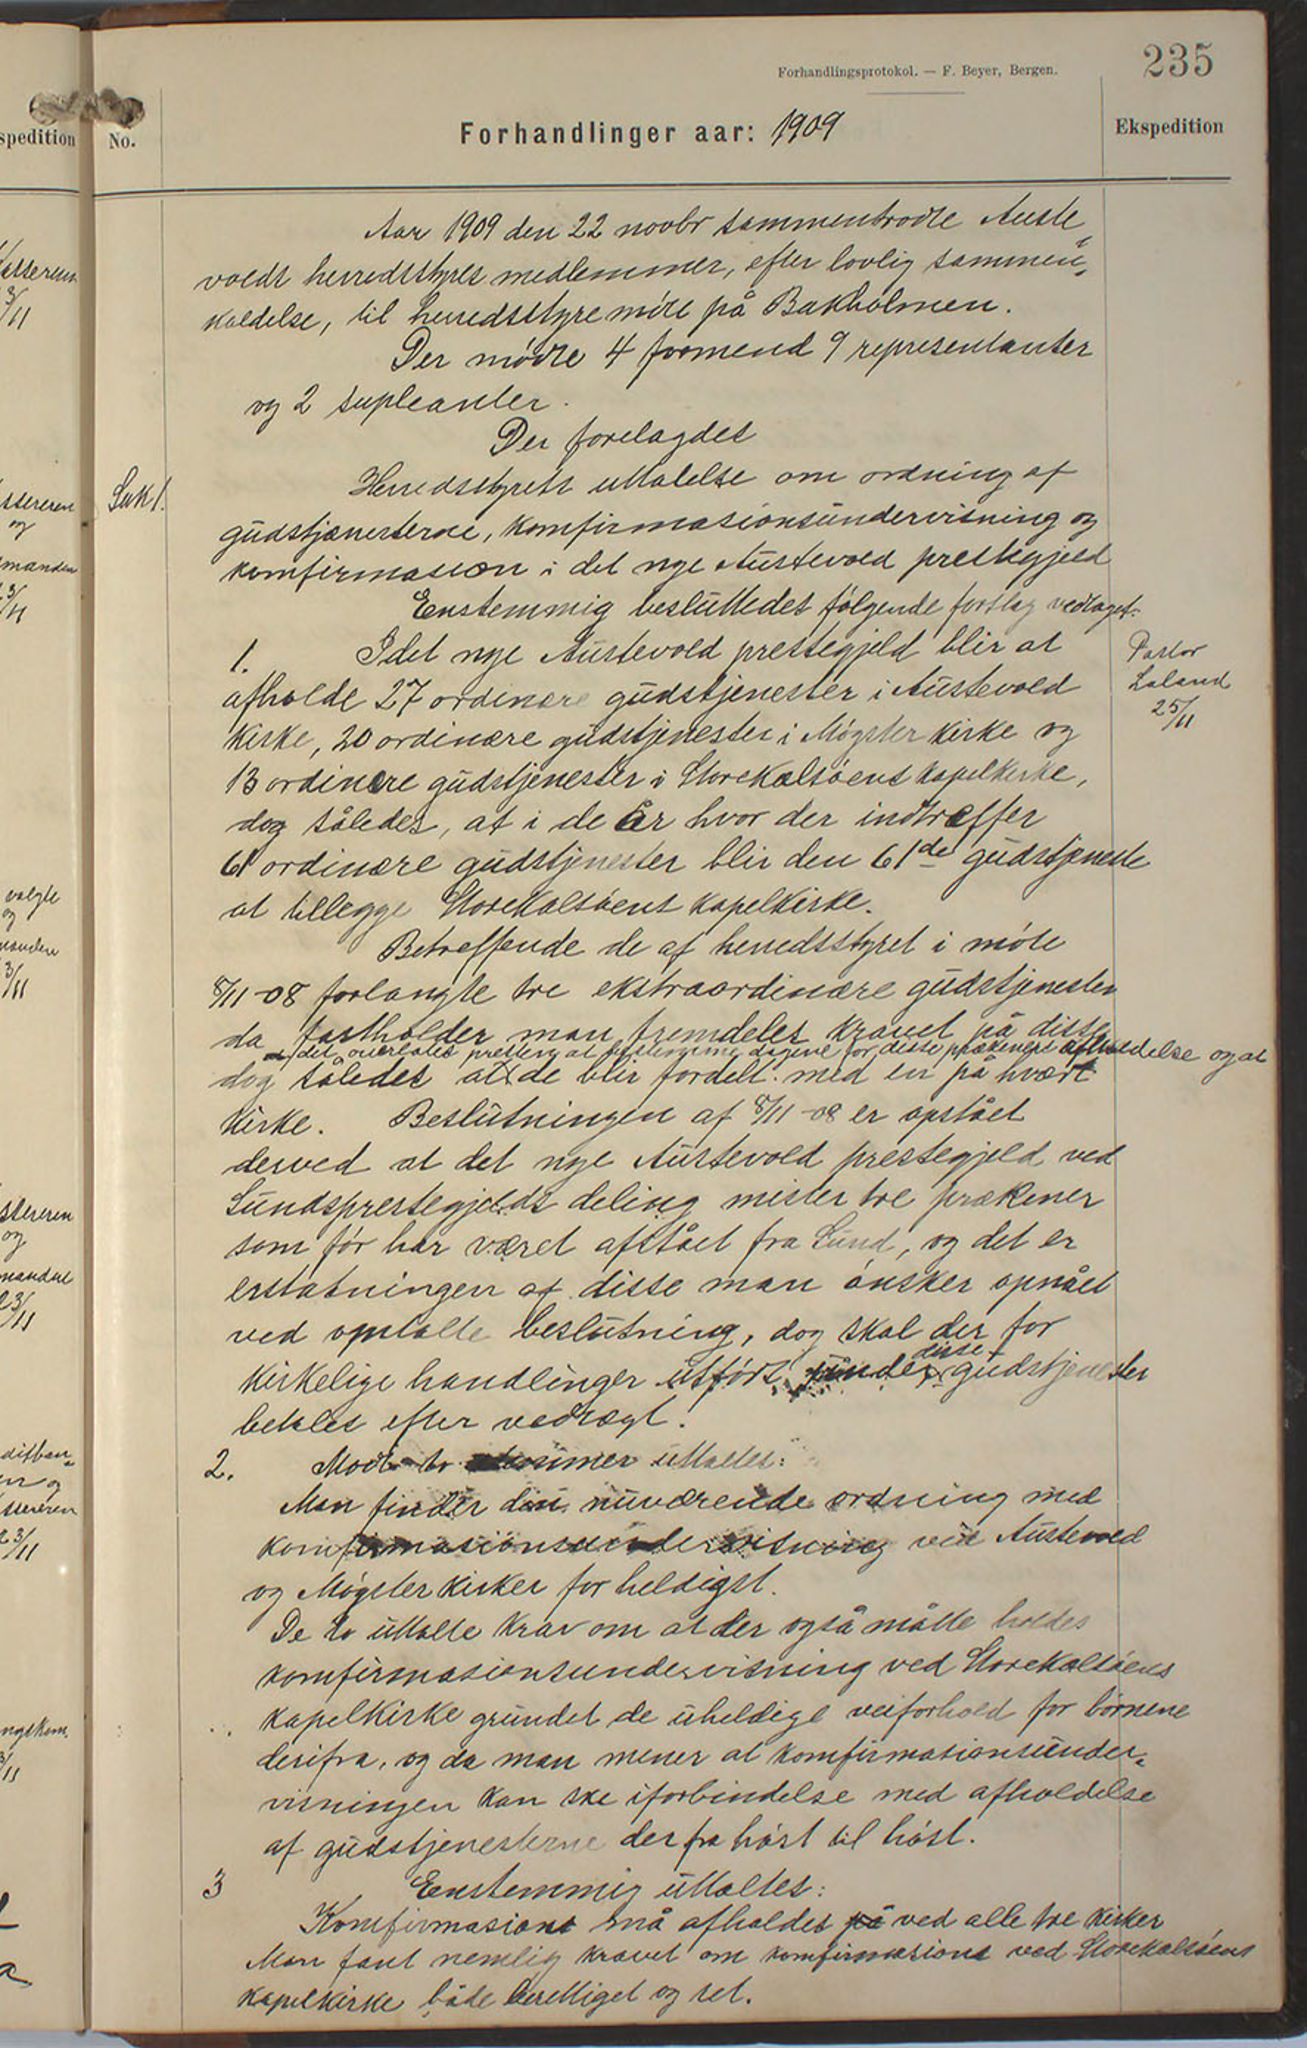 235
Forhandlingsprotokol. — F. Beyer, Bergen.
No.
Forhandlinger aar: 1909
Ekspedition
Aar 1909 den 22 novbr sammentrodte Auste„
volds herredsstyres medlemmer, efter lovlig sammen„
kaldelse, til herredsstyremöte på Bakholmen.
Der mødte 4 formend 9 representanter
og 2 supleanter.
Der forelagdes
Sak 1.
Herredsstyrets uttalelse om ordning af
gudstjænesterne, komfirmasionsundervisning og
komfirmasion i det nye Austevold prestegjeld
Eenstemmig besluttedes följgende forslag vedtaget:
1. I det nye Austevold prestegjeld blir at
afholde 27 ordinære gudstjenester i Austevold
kirke, 20 ordinære gudstjenester i Møgster kirke og
13 ordinære gudstjenester i Storekalsöens kapelkirke,
dog således, at i de år hvor der indtræffer
61 ordinære gudstjenester blir den 61de gudstjeneste
at tillegge Storekalsöens kapelkirke.
Pastor
Laland
25/11
Betreffende de af herredsstyret i möte
8/11-08 forlangte tre ekstraordinære gudstjenester
da fastholder man fremdeles kravet på disse
at det overlates presten at bestemme dagene for disse prækeners afholdelse og at
dog således at de blir fordelt med en på hvært
kirke. Beslutningen af 8/11-08 er opstået
derved at det nye Austevold prestegjeld ved
Sundsprestegjelds deling mister tre prækener
som för har været afstået fra Sund, og det er
erstatningen af disse man önsker opnået
ved omtalte beslutning, dog skal der for
kirkelige handlinger utført under disse gudstjenester
betales efter vedtægt.
2. Mod to stemmer uttaltes:
Man finder den nuværende ordning med
komfirmasionsundervisning ved Austevold
og Møgster kirker for heldigst.
De to uttalte krav om at der også måtte holdes
komfirmasionsundervisning ved Storekalsöens
kapelkirke grundet de uheldige veiforhold for börnene
derifra, og da man mener at komfirmasionsunder„
visningen kan ske iforbindelse med afholdelse
af gudstjenesterne der fra höst til höst.
3 Eenstemmig uttaltes:
Komfirmasion må afholdes ved alle tre kirker
Man fant nemlig kravet om komfirmasion ved Storekalsöens
kapelkirke både berettiget og ret.
spedition
kassereren
3/11
ssereren
og
manden
23/11
valgte
og
manden
3/11
ssereren
og
manden
23/11
ssereren
23/11